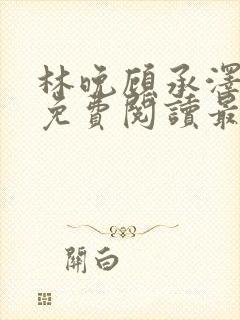 林晚顾承澤
免費閱讀最
開白